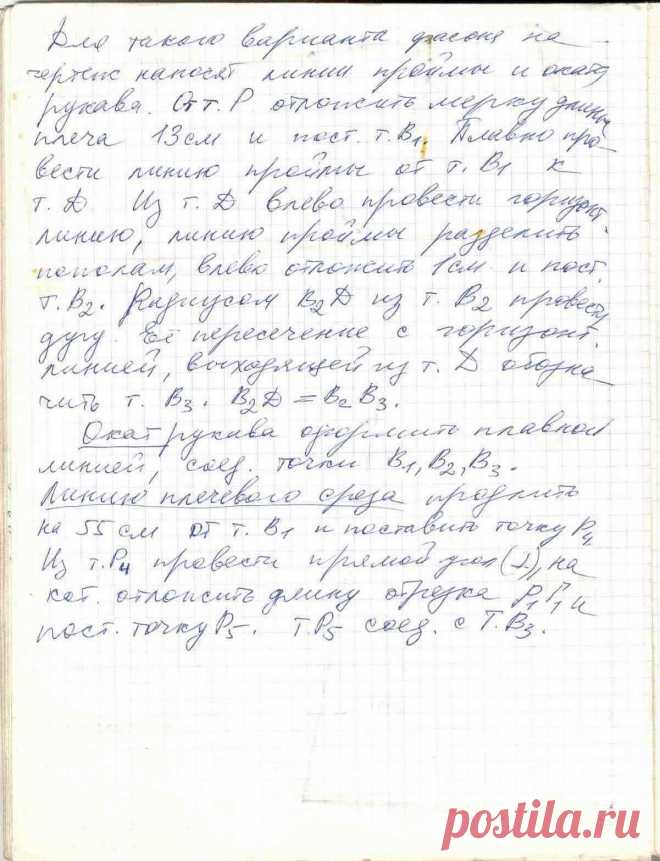 Для такого варианта фасона на
чертеж наносят линии проймы и оката
рукава. От т. Р отложить мерку длины
плеча 13 см и пост. т. В1. Плавно про-
вести линию проймы от т. В1 к
т. Д. Из т. Д влево провести горизонт.
линию, линию проймы разделить
пополам, влево отложить 1 см и пост.
т. В2. Радиусом В2Д из т. В2 провести
дугу. Её пересечение с горизонт.
линией, выходящей из т. Д обозна-
чить т. В3. В2Д = В2В3.
Окат рукава оформить плавной
линией, соед. точки В1, В2, В3.
Линию плечевого среза продлить
на 55 см от т. В1 и поставить точку Р4
Из т. Р4 провести прямой угол (⊥), на
кот. отложить длину отрезка Р1П1 и
пост. точку Р5. Т. Р5 соед. с Т. В3.
postila.ru